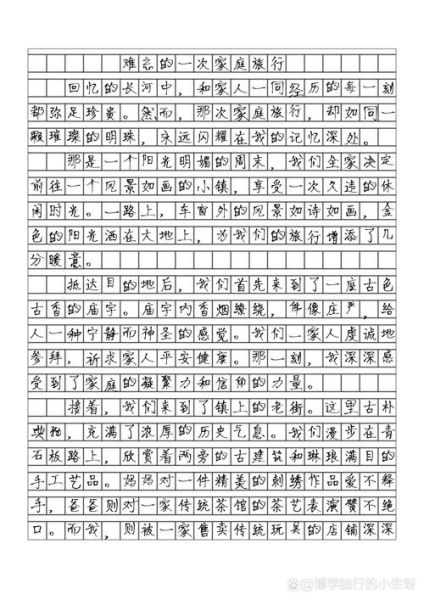 难忘的一次家庭旅行
回忆的长河中，和家人一同经历的每一刻
都弥足珍贵。然而，那次家庭旅行，却如同一
颗璀璨的明珠，永远闪耀在我的记忆深处。
那是一个阳光明媚的周末，我们全家决定
前往一个风景如画的小镇，享受一次久违的休
闲时光。一路上，车窗外的风景如诗如画，金
色的阳光洒在大地上，为我们的旅行增添了几
分暖意。
抵达目的地后，我们首先来到了一座古色
古香的庙宇。庙宇内香烟缭绕，佛像庄严，给
人一种宁静而神圣的感觉。我们一家人虔诚地
参拜，祈求家人平安健康。那一刻，我深深感
受到了家庭的凝聚力和信仰的力量。
接着，我们来到了镇上的老街。这里古朴
典雅，充满了浓厚的历史气息。我们漫步在青
石板路上，欣赏着两旁的古建筑和琳琅满目的
手工艺品。妈妈对一件精美的刺绣作品爱不释
手，爸爸则对一家传统茶馆的茶艺表演赞不绝
口。而我，则被一家售卖传统玩具的店铺深深
@博学独行的小生呀